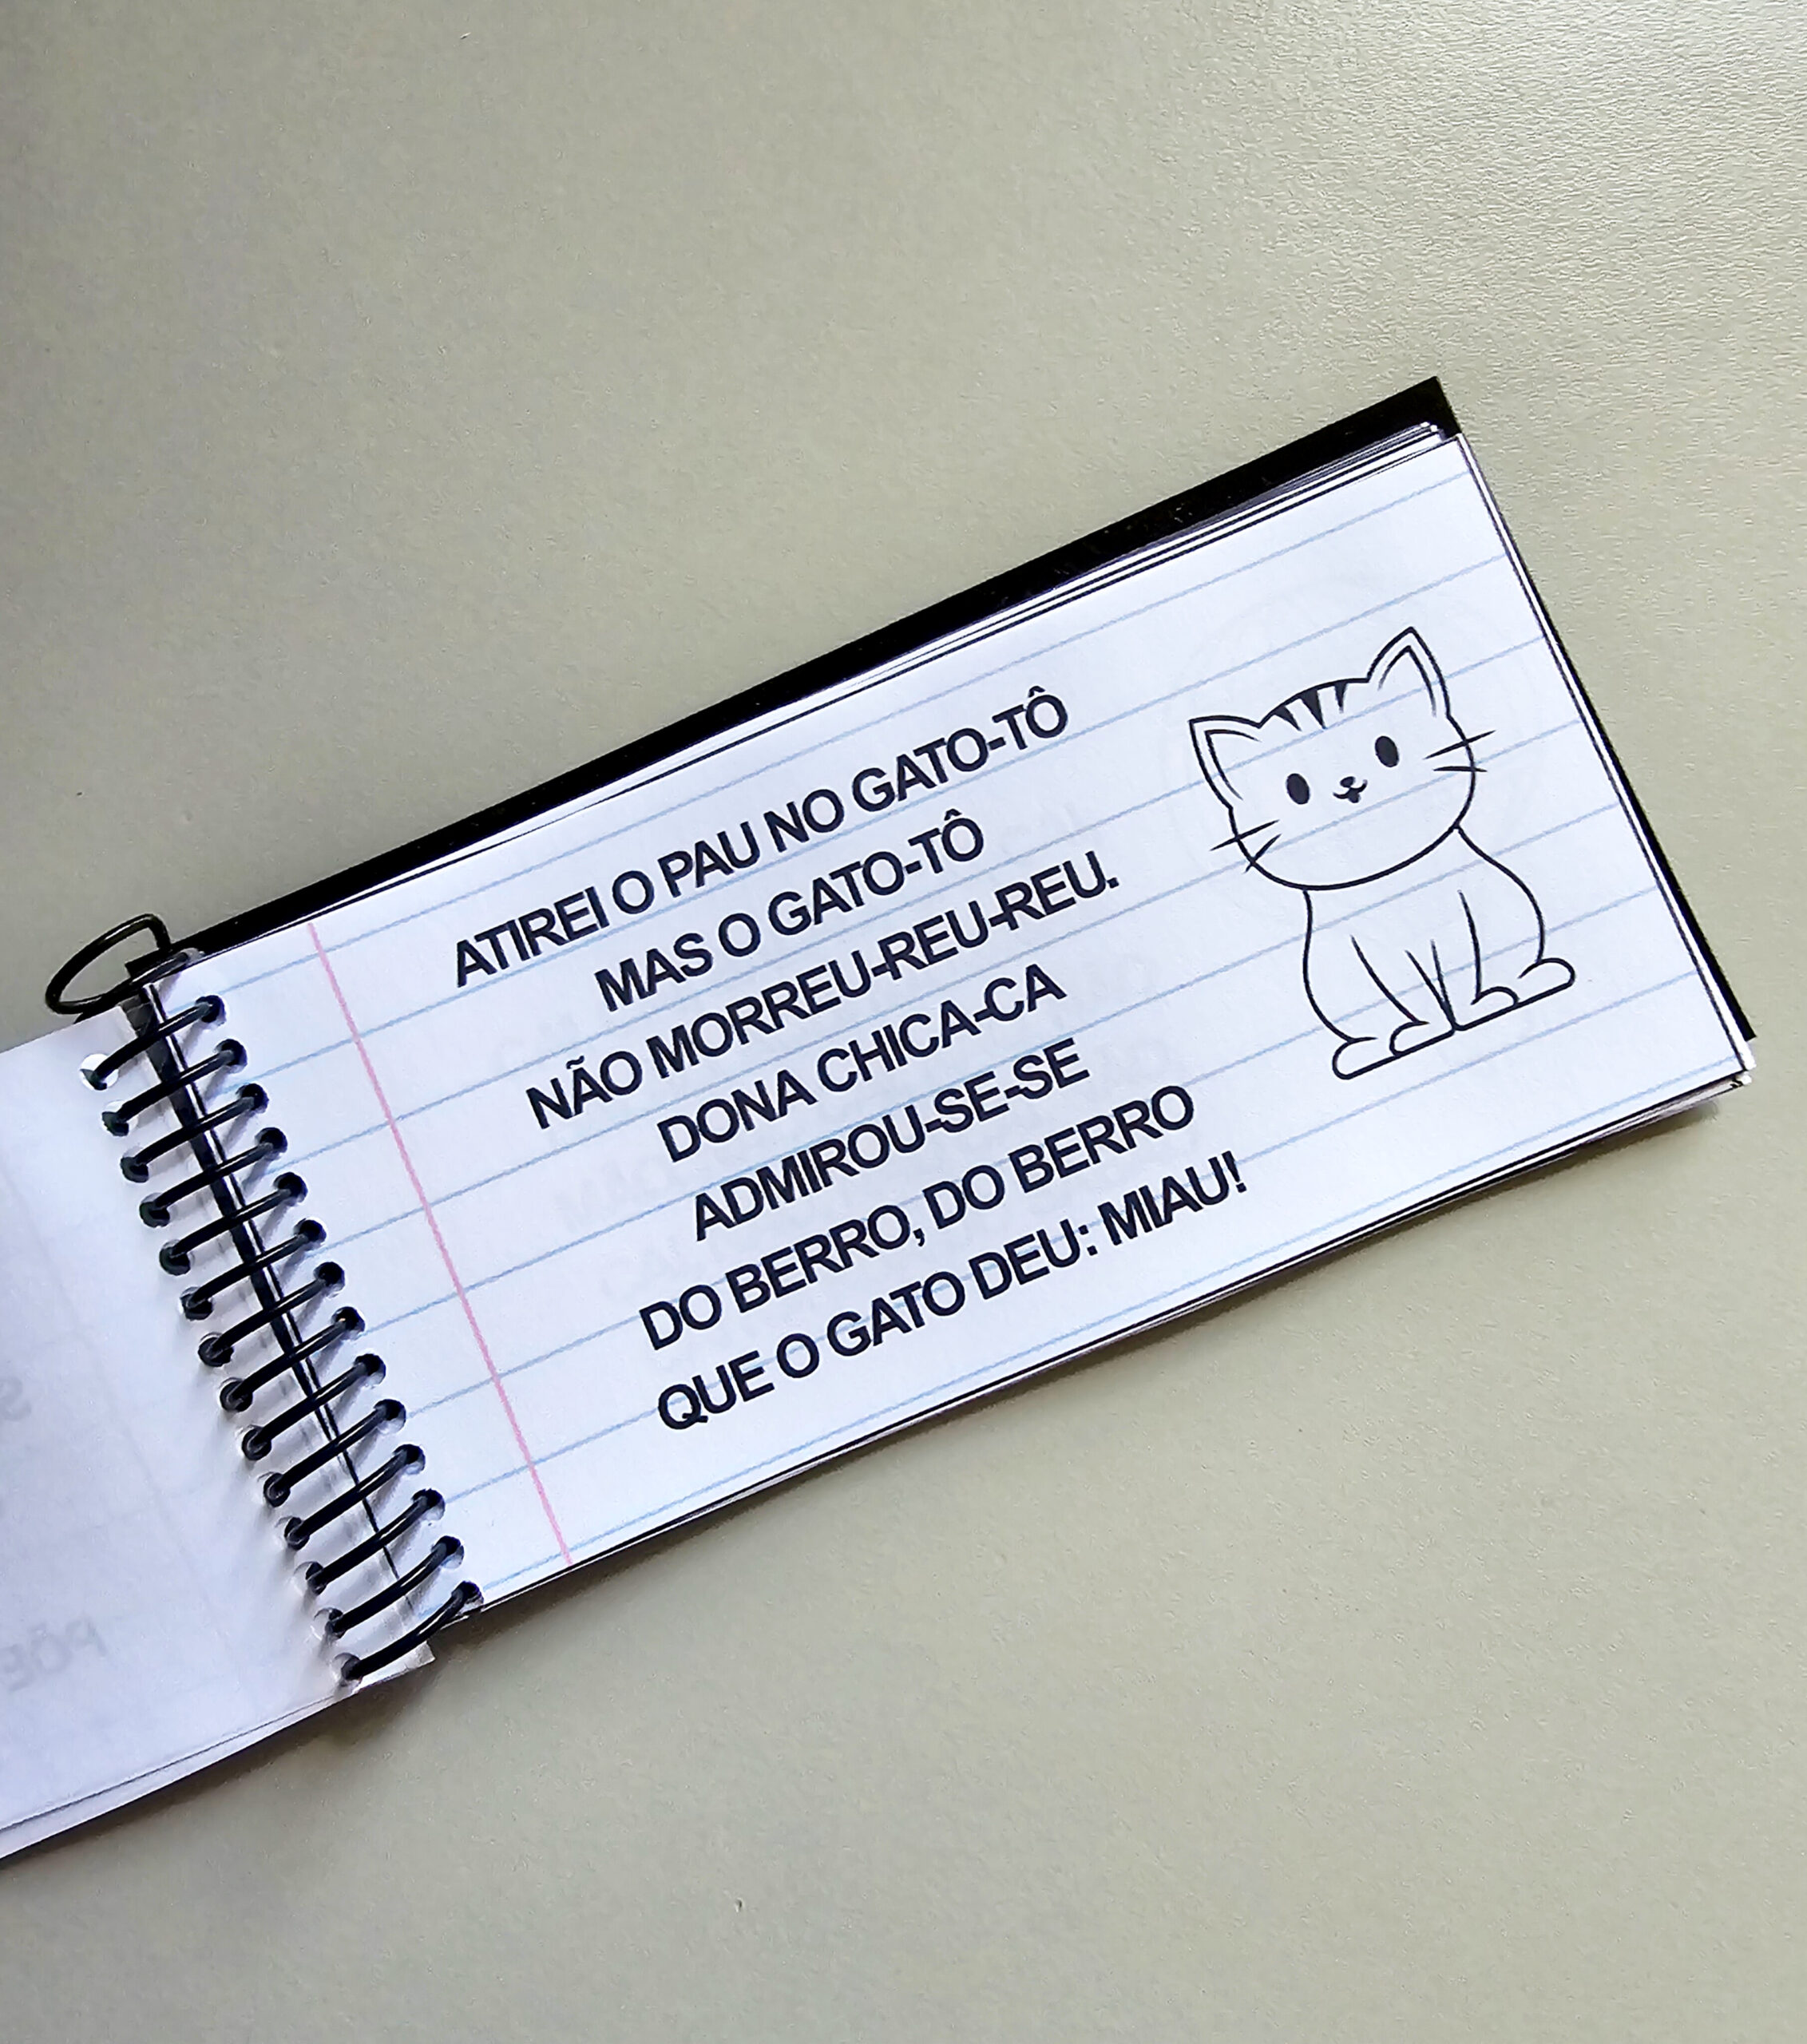 ATIREI O PAU NO GATO-TÔ
MAS O GATO-TÔ
NÃO MORREU-REU-REU.
DONA CHICA-CA
ADMIROU-SE-SE
DO BERRO, DO BERRO
QUE O GATO DEU: MIAU!